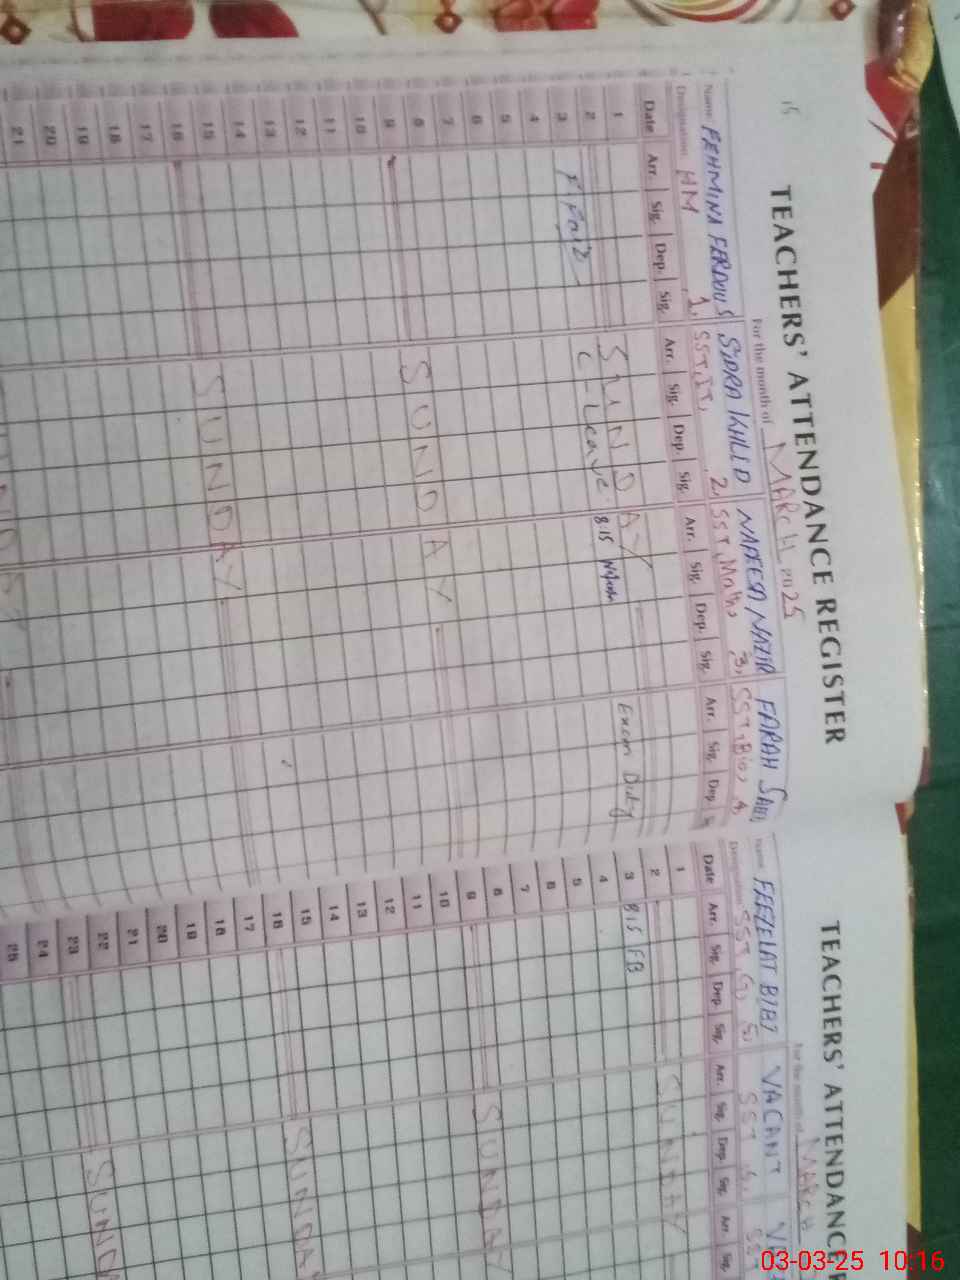 15
TEACHERS' ATTENDANCE REGISTER
For the month of MARCH 2025
Name FEHMINA FERDOUS SIDRA KHLID NAFEESA NAZIR FARAH
Designation HM 1, SST, IT, 2, SST, Maths 3, SST, Bio, 4,
Date Arr. Sig. Dep. Sig. Arr. Sig. Dep. Sig. Arr. Sig. Dep. Sig. Arr. Sig. Dep.
1
2 SUNDAY
3 C-Leave. 8:15 Exam Duty
4
5
6
7
8
9 SUNDAY
10
11
12
13
14
15
16 SUNDAY
17
18
19
20
21
TEACHERS' ATTENDANCE
For the month of MARCH
Name FEEZELAT BIBI VACANT
SST, G, 5, SST
Date Arr. Sig. Dep. Sig. Arr. Sig. Dep. Sig. Arr. Sig.
1
2 SUNDAY
3 815 FB
4
5
6
7
8
9 SUNDAY
10
11
12
13
14
15
16 SUNDA
17
18
19
20
21
22
23 SUND
24
25
03-03-25 10:16